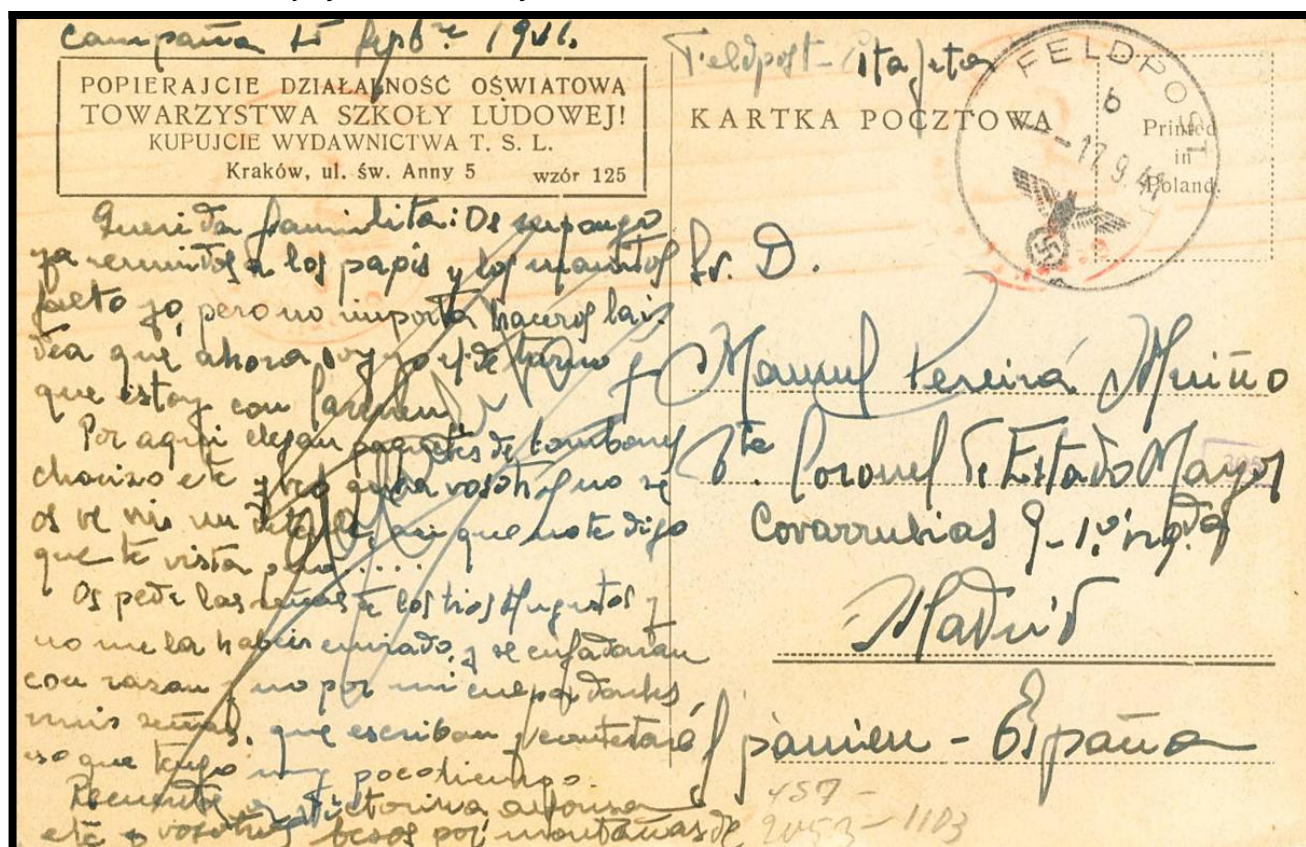 Campaña 15 Sepbre 1941.
Feldpost - Estafeta
POPIERAJCIE DZIAŁALNOŚĆ OŚWIATOWĄ
TOWARZYSTWA SZKOŁY LUDOWEJ!
KUPUJCIE WYDAWNICTWA T. S. L.
Kraków, ul. św. Anny 5 wzór 125
KARTKA POCZTOWA
Printed
in
Poland.
FELDPOST
b
17.9.41
Querida familita: Os supongo
ya reunidos a los papis y los
falto yo, pero no importa haceros la i-
dea que ahora soy yo el de turno
que estoy con
Por aqui llegan paquetes de
chorizo etc y veo que a vosotros no se
os ve ni un detalle, asi que no te digo
que te vista
Os pedi las señas de los tios Augustos y
no me la habeis enviado, y se enfadaran
con razon y no por mi culpa, darles
mis señas, que escriban y contestaré
eso que tengo muy poco tiempo.
Recuerdos a Victorina
etc a vosotros besos por montañas de
Sr. D.
Manuel Pereira Muiño
Tte. Coronel de Estado Mayor
Covarrubias 9-1º izqda
Madrid
Spanien - España
457 -
2053 - 1103